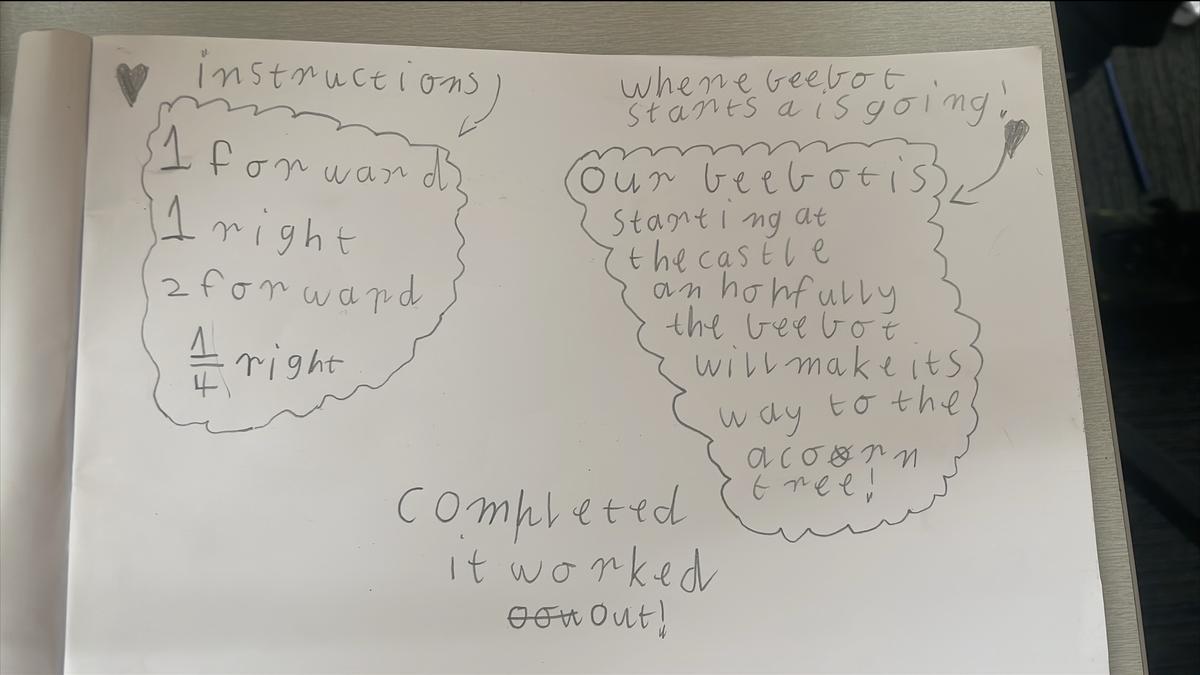 instructions
1 forward
1 right
2 forward
1/4 right
where beebot
starts a is going!
our beebot is
starting at
the castle
an hopfully
the beebot
will make its
way to the
acorn
tree!
completed
it worked
out!